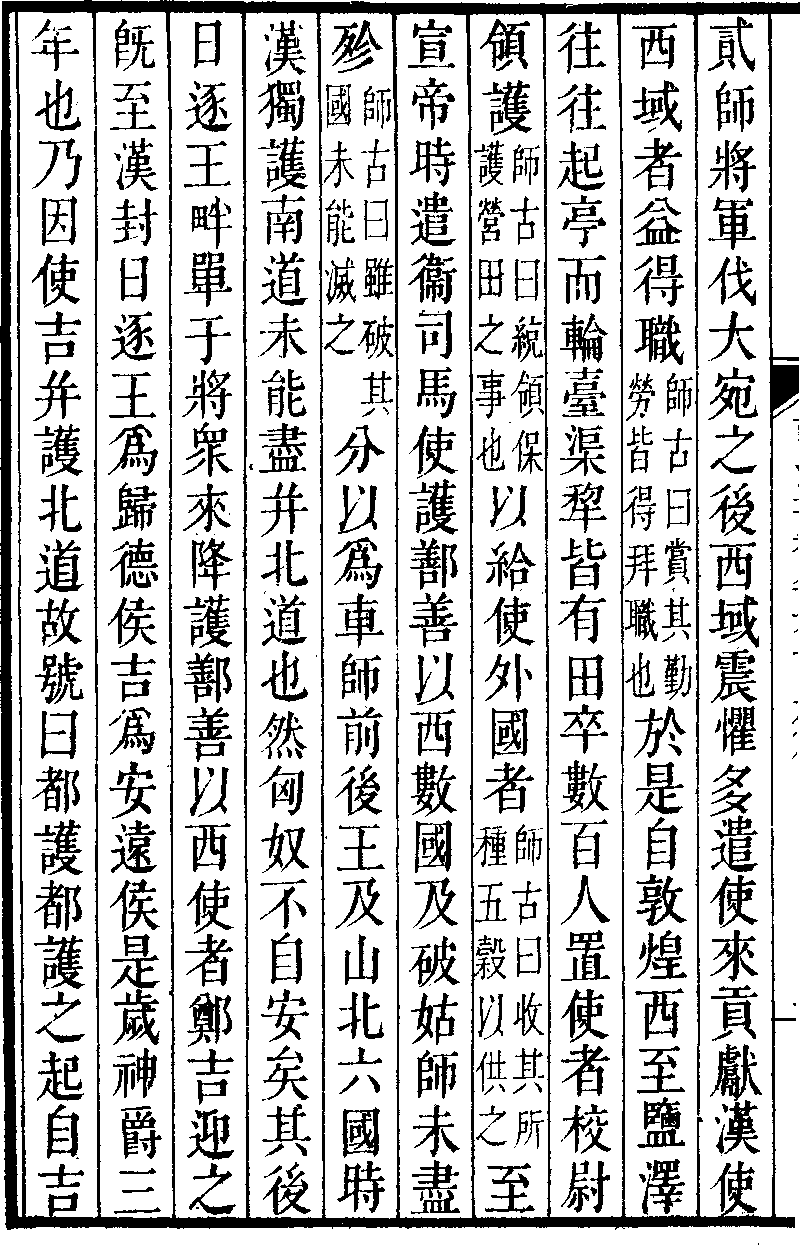 貳師將軍伐大宛之後西域震懼多遣使來貢獻漢使
西域者益得職師古曰賞其勤勞皆得拜職也於是自敦煌西至鹽澤
往往起亭而輪臺渠犂皆有田卒數百人置使者校尉
領護師古曰統領保護營田之事也以給使外國者師古曰收其所種五穀以供之至
宣帝時遣衞司馬使護鄯善以西數國及破姑師未盡
殄師古曰雖破其國未能滅之分以爲車師前後王及山北六國時
漢獨護南道未能盡幷北道也然匈奴不自安矣其後
日逐王畔單于將衆來降護鄯善以西使者鄭吉迎之
旣至漢封日逐王爲歸德侯吉爲安遠侯是歲神爵三
年也乃因使吉幷護北道故號曰都護都護之起自吉